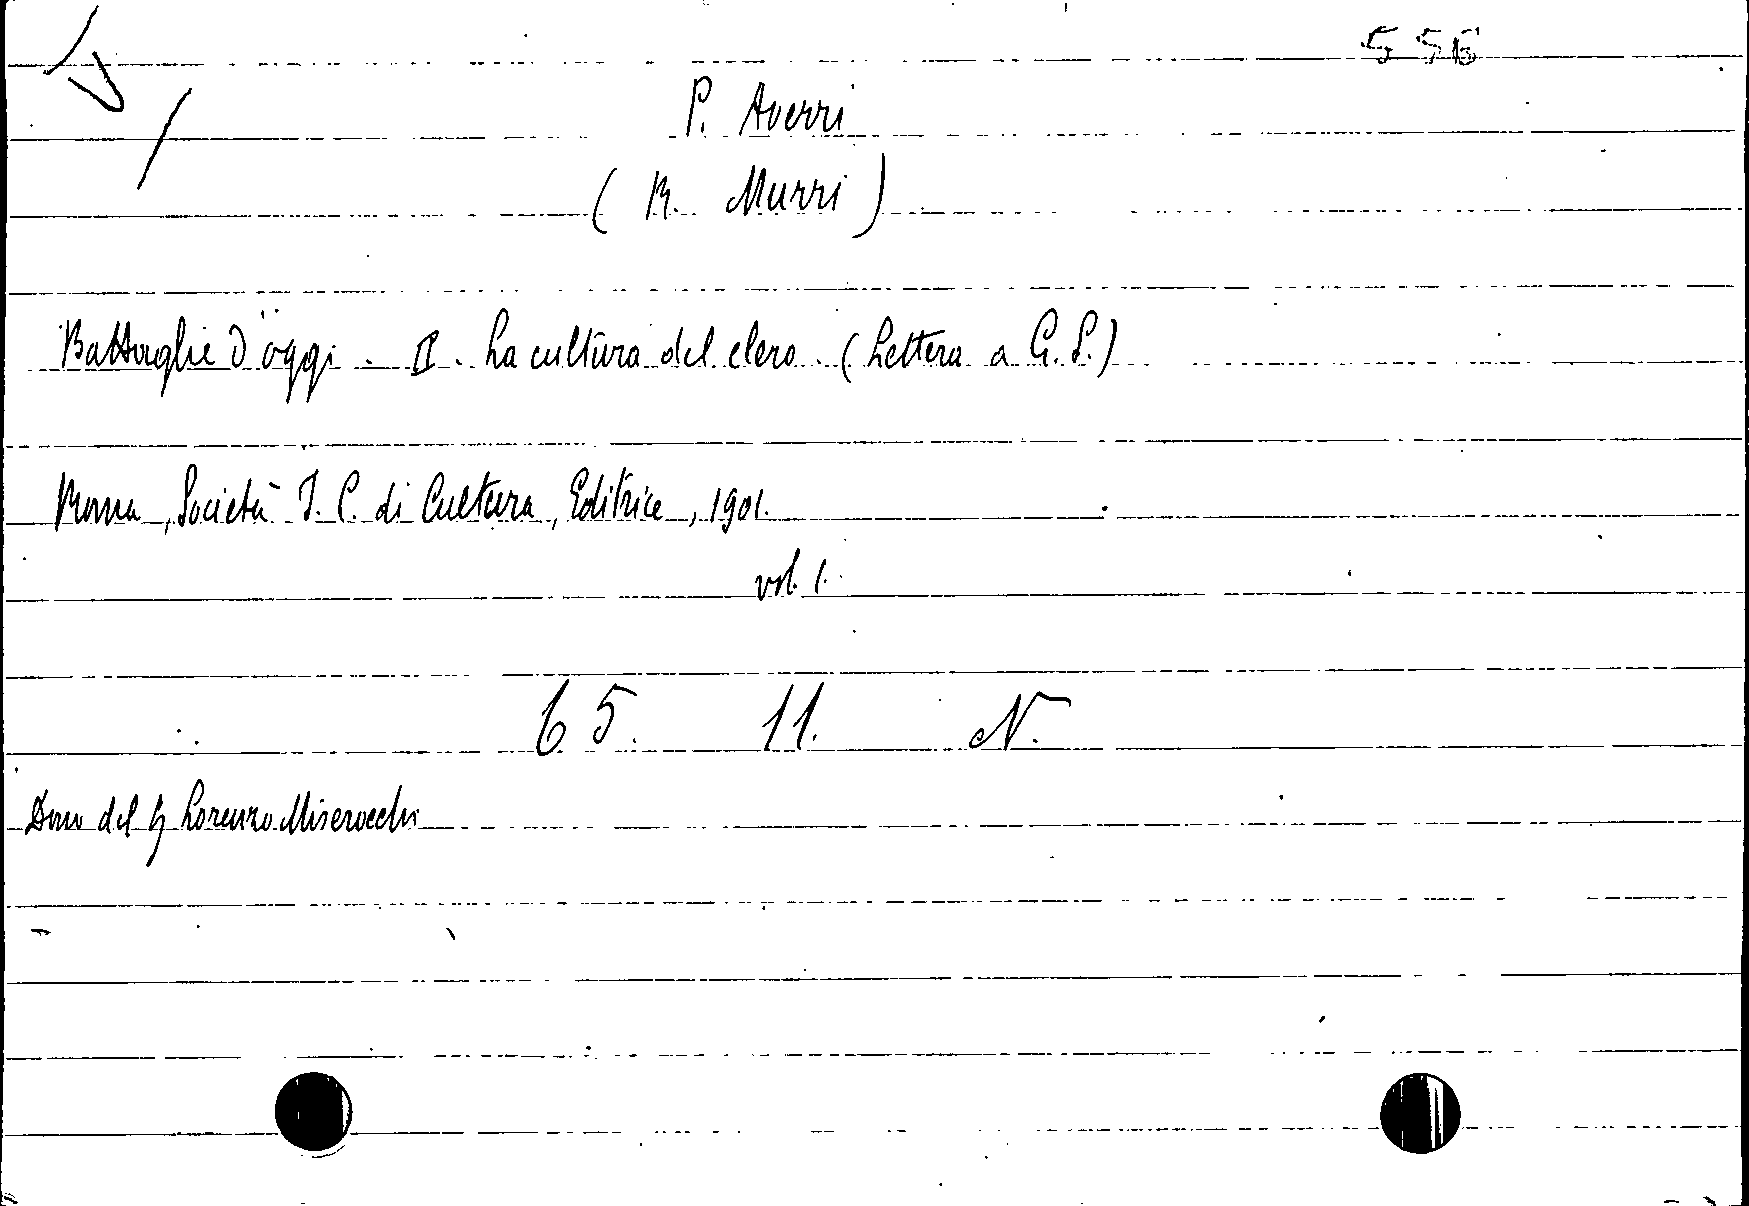 556
P. Averri
( R. Murri )
Battaglie d'oggi. II. La cultura del clero. (Lettera a G. S.)
Roma, Società I. C. di Cultura, Editrice, 1901.
vol. 1.
65. 11. N.
Dono del Sg Lorenzo Miserocchi